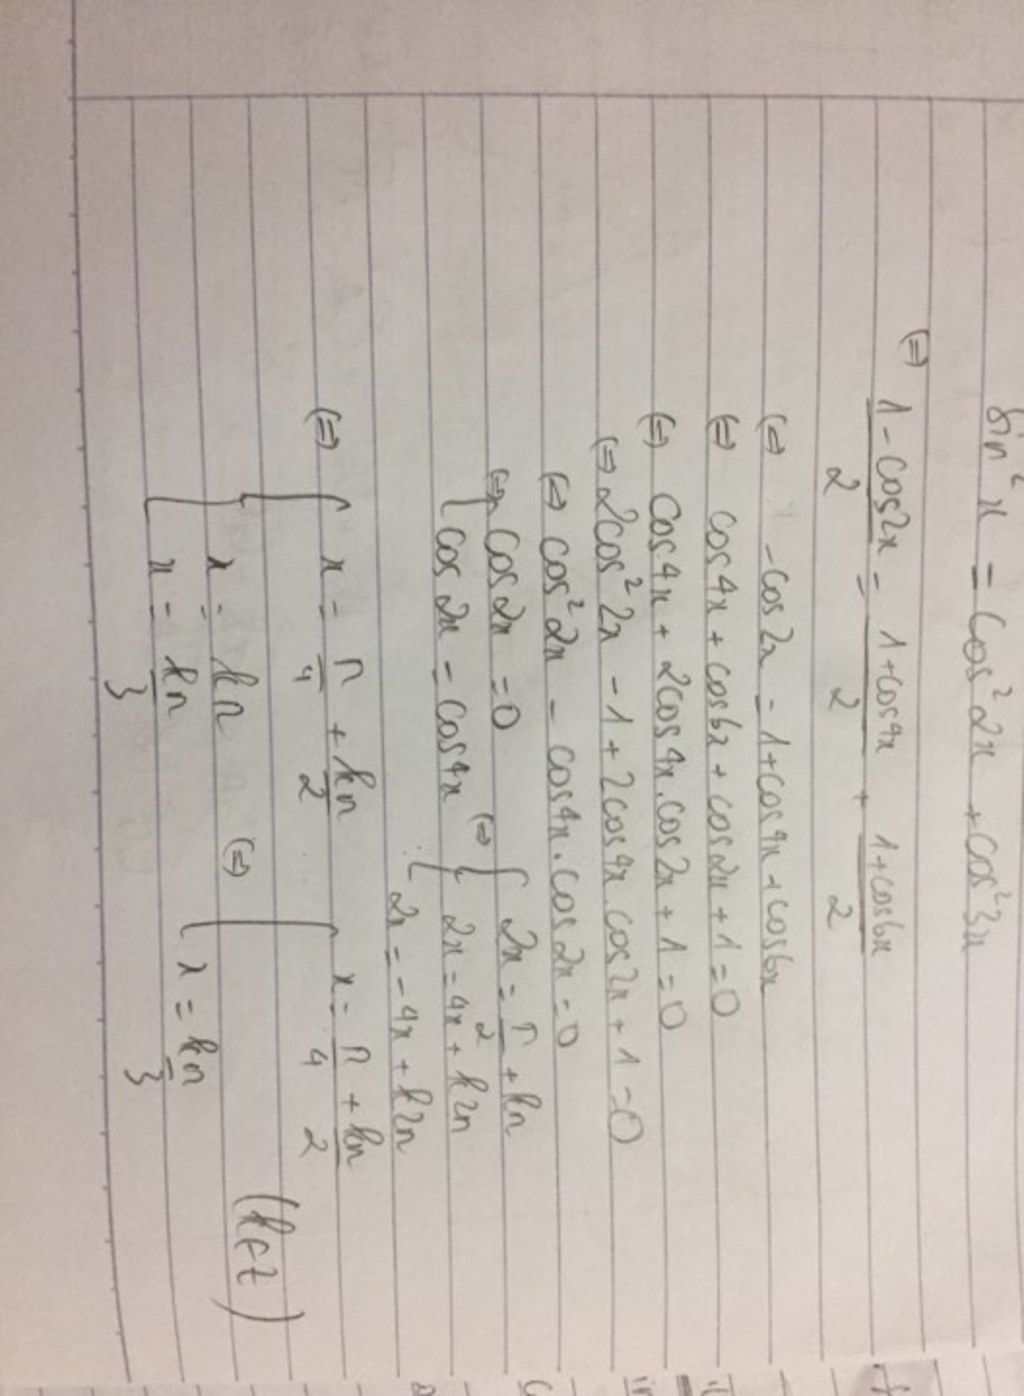 sin²x = cos²2x + cos²3x
(=) (1 - cos2x)/2 = (1 + cos4x)/2 + (1 + cos6x)/2
(=) -cos2x = 1 + cos4x + cos6x
(=) cos4x + cos6x + cos2x + 1 = 0
(=) cos4x + 2cos4x.cos2x + 1 = 0
(=) 2cos²2x - 1 + 2cos4x.cos2x + 1 = 0
(=) cos²2x - cos4x.cos2x = 0
(=) [ cos2x = 0 (=) [ 2x = π/2 + kπ
cos2x = cos4x 2x = 4x + k2π
2x = -4x + k2π
(=) [ x = π/4 + kπ/2 x = π/4 + kπ/2
x = kπ (=) [ (k∈Z)
x = kπ/3 x = kπ/3